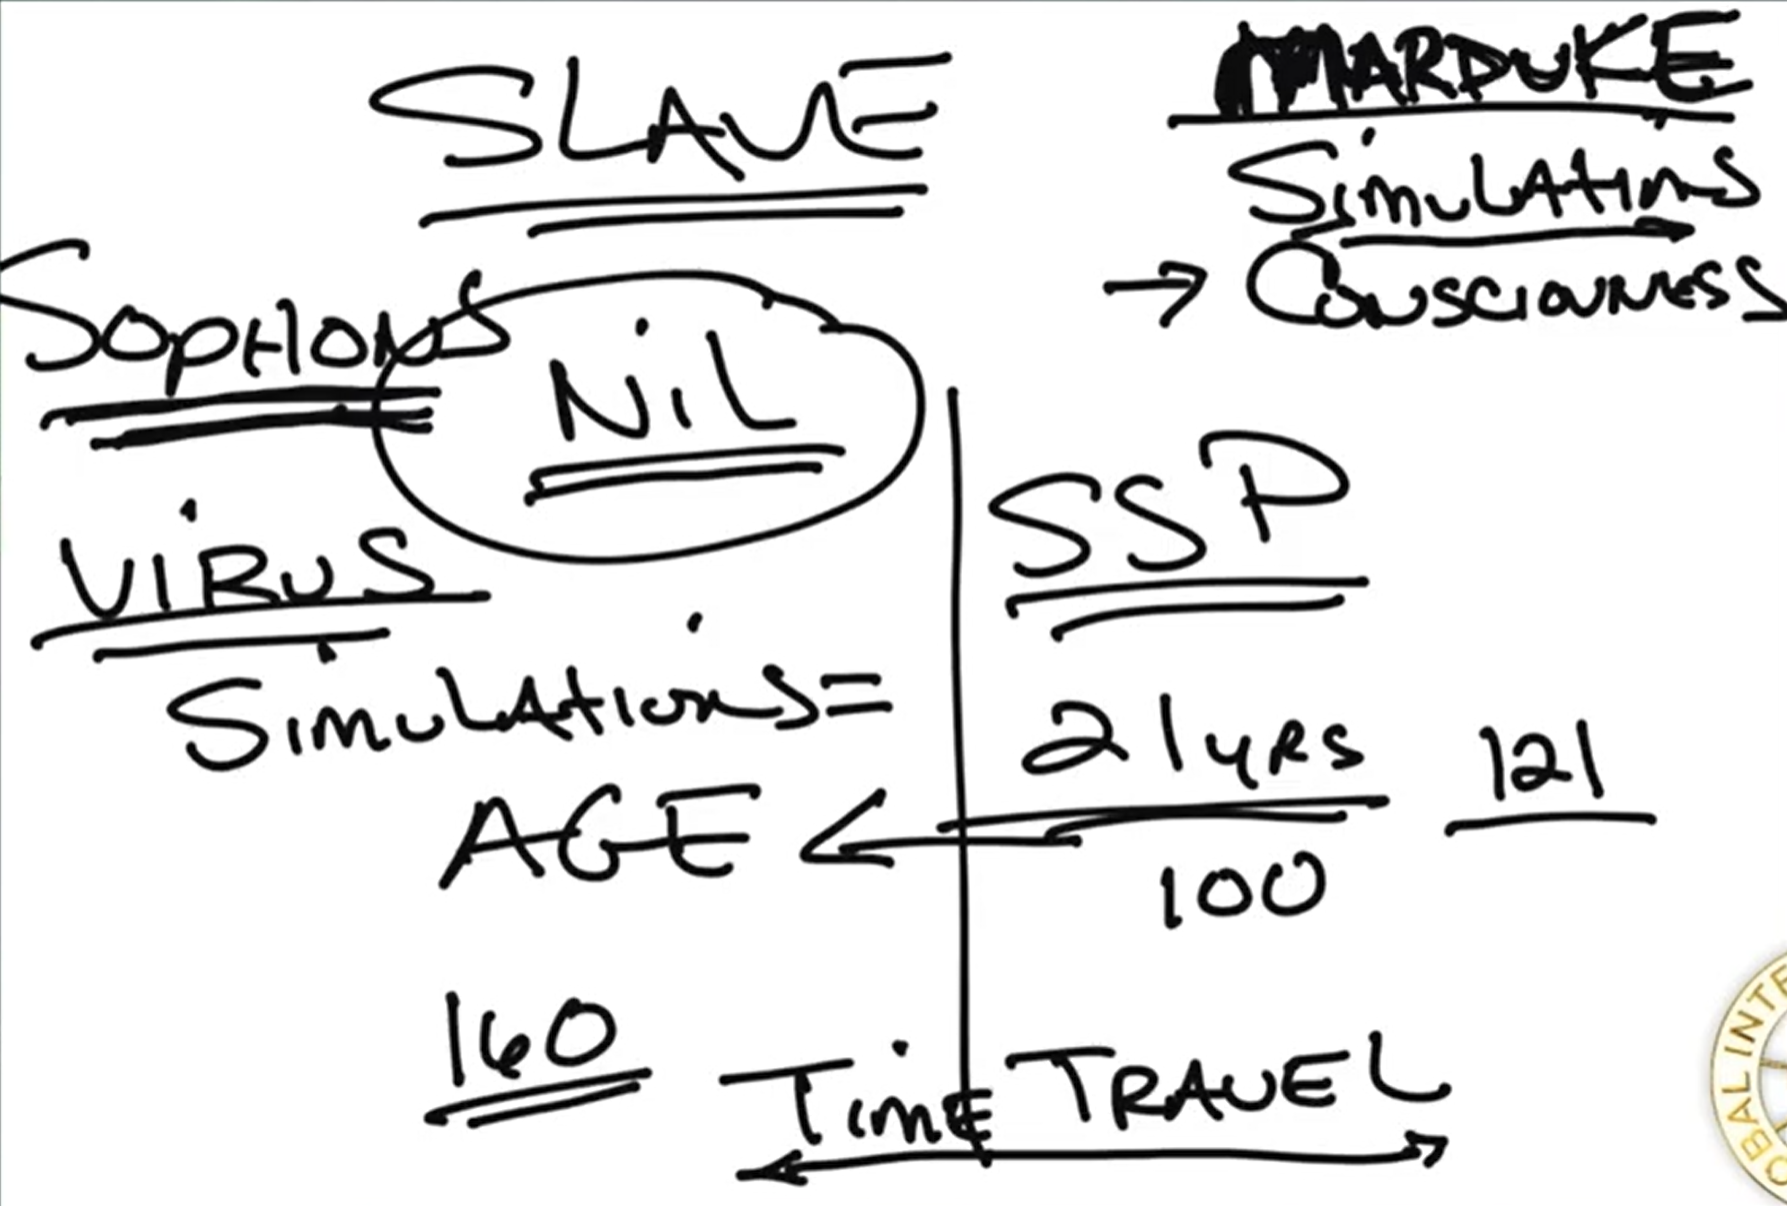 SLAVE
MARDUKE
Simulations
→ Consciousness
Sophons
NiL
VIRUS
SSP
Simulations=
21 yrs
121
AGE ←
100
160
Time TRAVEL
OBAL INTE